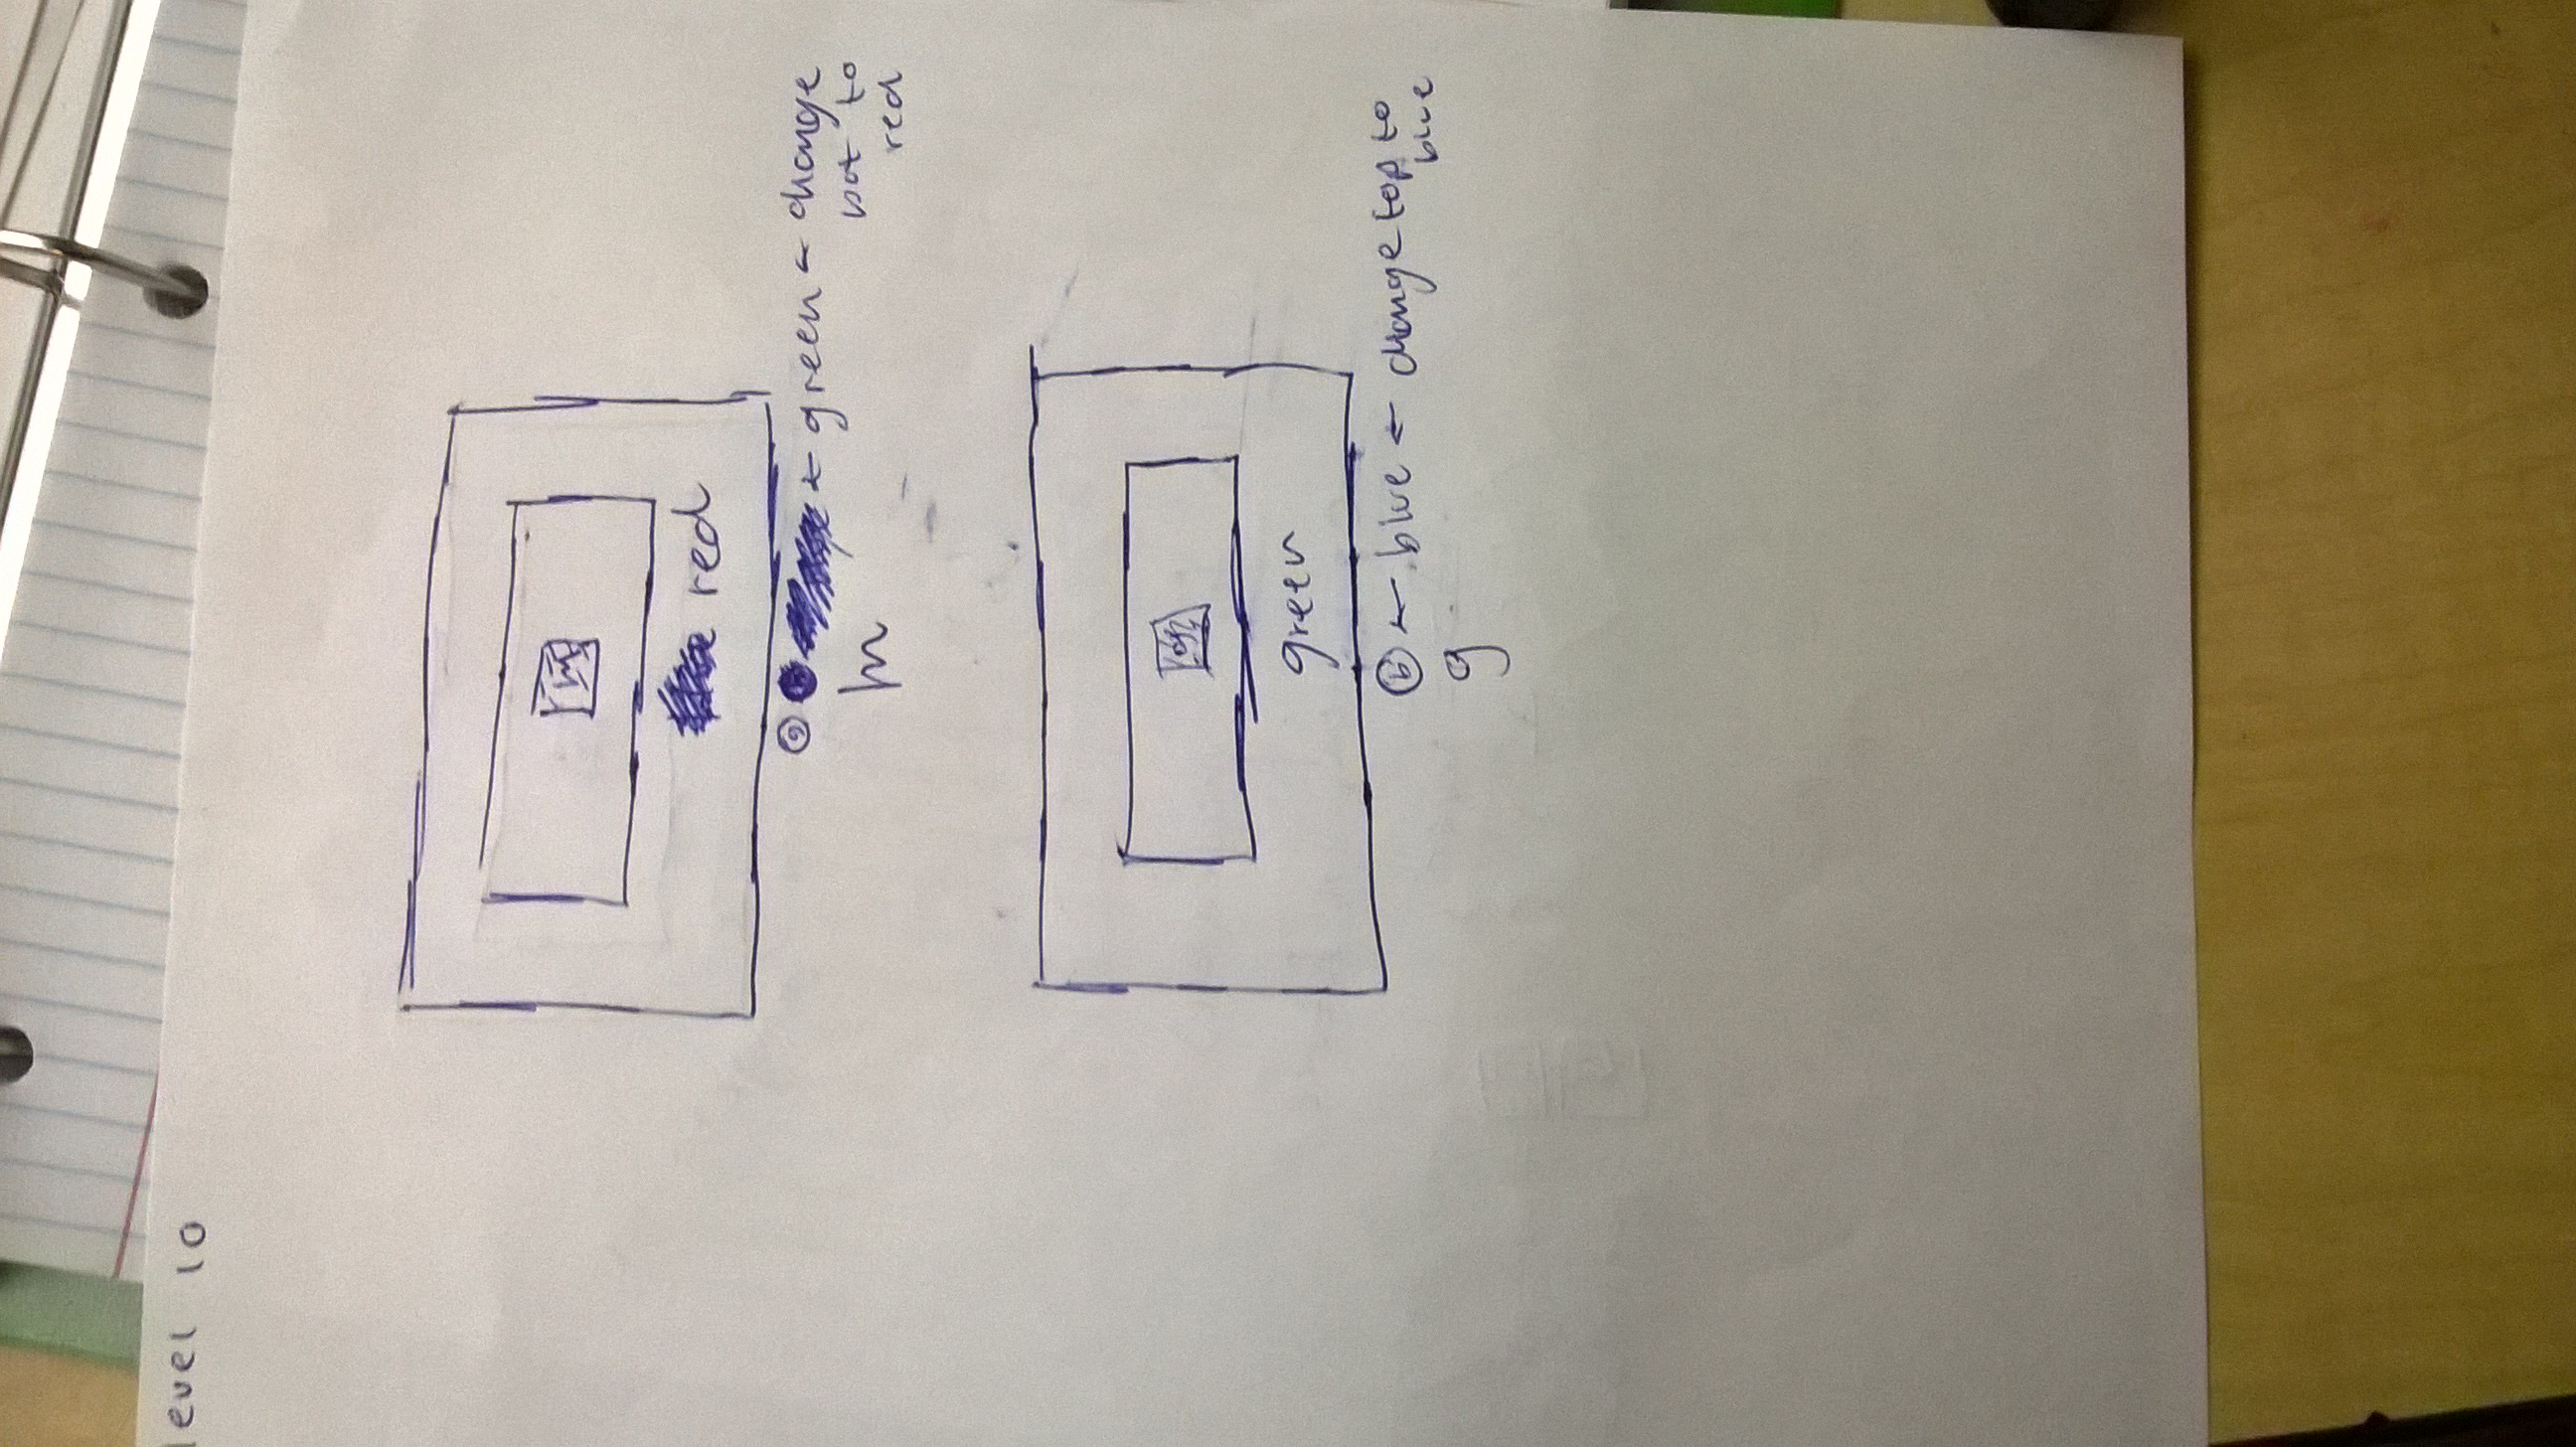 level 10
red
g ← green ← change
bot to
red
h
green
b ← blue ← change top to
blue
g